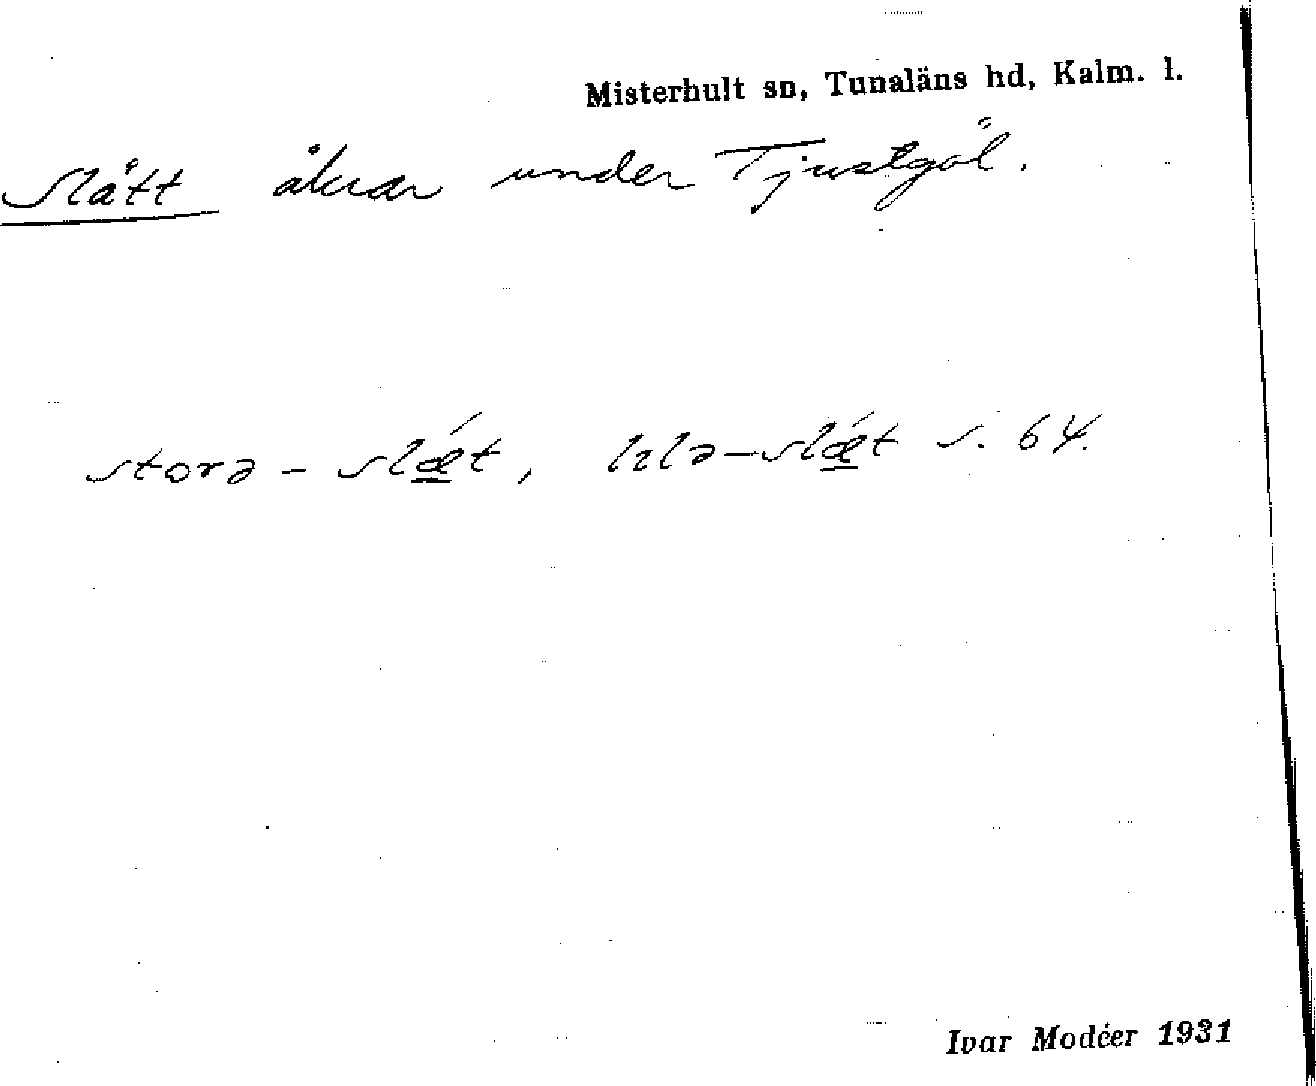 Misterhult sn, Tunaläns hd, Kalm. l.
Slått åkrar under Tjustgöl.
storə - slǽt, lɩlə-slǽt s. 64.
Ivar Modéer 1931